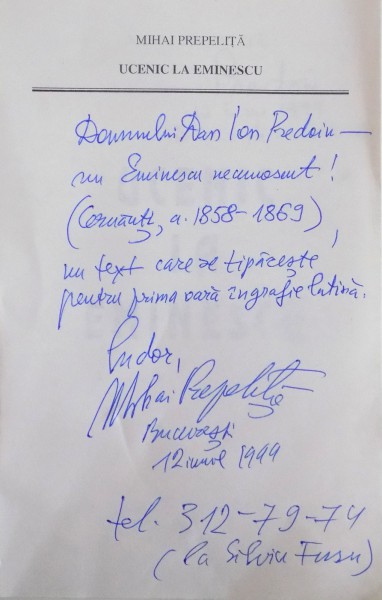 MIHAI PREPELIȚĂ
UCENIC LA EMINESCU
Domnului Dan Ion Predoiu —
un Eminescu necunoscut!
(Cernăuți, a. 1858-1869),
un text care se tipărește
pentru prima oară în grafie latină.
Tudor,
Mihai Prepeliță
București
12 iunie 1999
tel. 312-79-74
(la Silviu Fusu)